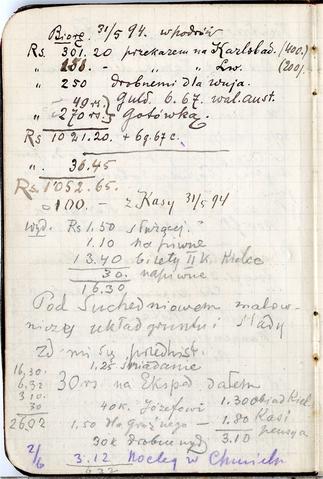 Biorę 31/5 94. w podróż
Rs. 301.20 przekazem na Karlsbad. (400.)
" 150. - " " Lw. (200).
" 250 drobnemi dla wuja.
" 40 rs. Guld. 6.67. wal. aust.
" 270 rs. Gotówką.
Rs 1021.20. + 6g. 67c.
". 36.45
Rs. 1052.65.
100. - z Kasy 31/5 94
Wyd. Rs 1.50 służącej.
1.10 na piwne
13.40 bilety II K. Kielce
30. napiwne
16.30
Pod Suchedniowem malow-
niczej układ gruntu i ślady
Zd
1.25 śniadanie
16,30.
6.32
3.10.
30
26.02
30 rs na Ekspd dałem
40 K. Józefowi
1.30 obiad Kiel
1.50 - 1.80 Kasi
30 K drobne wyd
3.10
2/6 3.12 Nocleg w
6.32